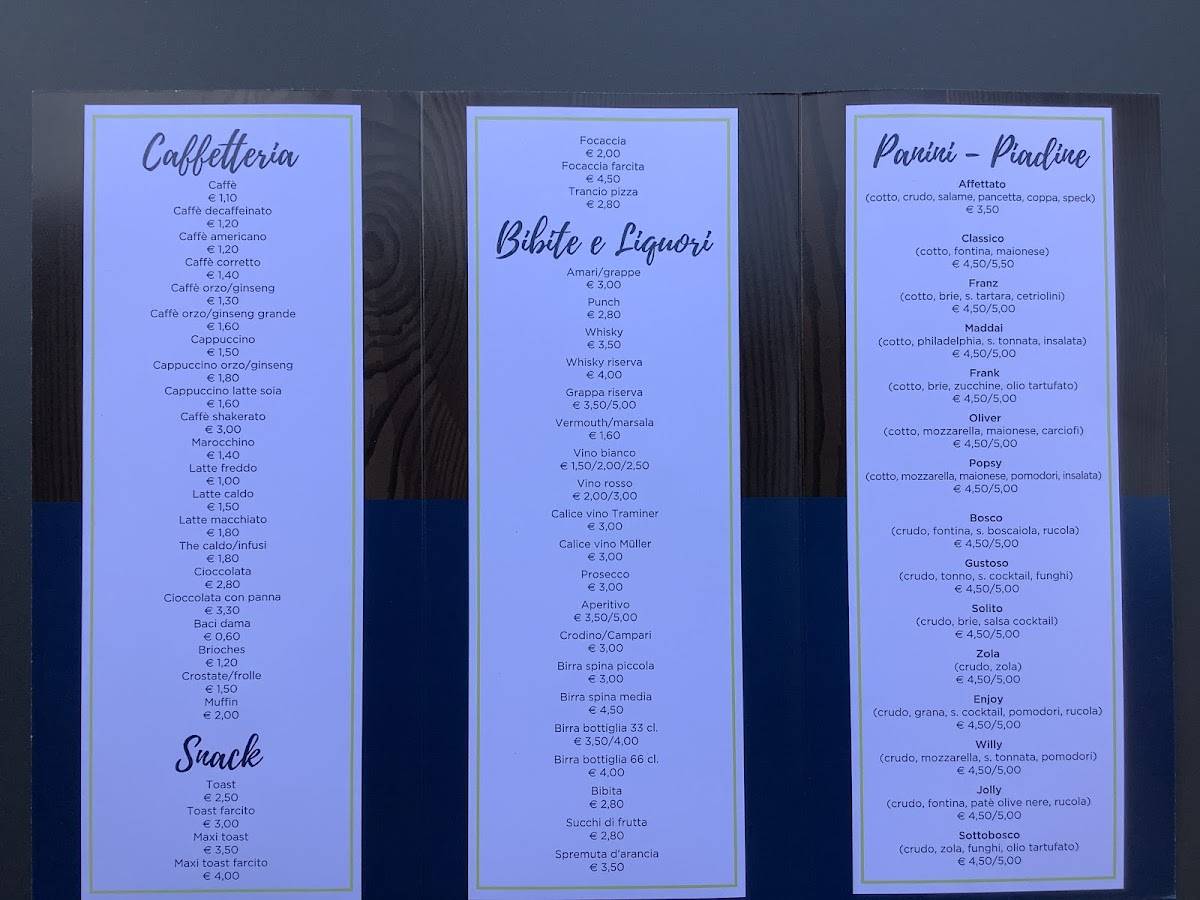 Caffetteria
Caffè
€ 1,10
Caffè decaffeinato
€ 1,20
Caffè americano
€ 1,20
Caffè corretto
€ 1,40
Caffè orzo/ginseng
€ 1,30
Caffè orzo/ginseng grande
€ 1,60
Cappuccino
€ 1,50
Cappuccino orzo/ginseng
€ 1,80
Cappuccino latte soia
€ 1,60
Caffè shakerato
€ 3,00
Marocchino
€ 1,40
Latte freddo
€ 1,00
Latte caldo
€ 1,50
Latte macchiato
€ 1,80
The caldo/infusi
€ 1,80
Cioccolata
€ 2,80
Cioccolata con panna
€ 3,30
Baci dama
€ 0,60
Brioches
€ 1,20
Crostate/frolle
€ 1,50
Muffin
€ 2,00
Snack
Toast
€ 2,50
Toast farcito
€ 3,00
Maxi toast
€ 3,50
Maxi toast farcito
€ 4,00
Focaccia
€ 2,00
Focaccia farcita
€ 4,50
Trancio pizza
€ 2,80
Bibite e Liquori
Amari/grappe
€ 3,00
Punch
€ 2,80
Whisky
€ 3,50
Whisky riserva
€ 4,00
Grappa riserva
€ 3,50/5,00
Vermouth/marsala
€ 1,60
Vino bianco
€ 1,50/2,00/2,50
Vino rosso
€ 2,00/3,00
Calice vino Traminer
€ 3,00
Calice vino Müller
€ 3,00
Prosecco
€ 3,00
Aperitivo
€ 3,50/5,00
Crodino/Campari
€ 3,00
Birra spina piccola
€ 3,00
Birra spina media
€ 4,50
Birra bottiglia 33 cl.
€ 3,50/4,00
Birra bottiglia 66 cl.
€ 4,00
Bibita
€ 2,80
Succhi di frutta
€ 2,80
Spremuta d'arancia
€ 3,50
Panini - Piadine
Affettato
(cotto, crudo, salame, pancetta, coppa, speck)
€ 3,50
Classico
(cotto, fontina, maionese)
€ 4,50/5,50
Franz
(cotto, brie, s. tartara, cetriolini)
€ 4,50/5,00
Maddai
(cotto, philadelphia, s. tonnata, insalata)
€ 4,50/5,00
Frank
(cotto, brie, zucchine, olio tartufato)
€ 4,50/5,00
Oliver
(cotto, mozzarella, maionese, carciofi)
€ 4,50/5,00
Popsy
(cotto, mozzarella, maionese, pomodori, insalata)
€ 4,50/5,00
Bosco
(crudo, fontina, s. boscaiola, rucola)
€ 4,50/5,00
Gustoso
(crudo, tonno, s. cocktail, funghi)
€ 4,50/5,00
Solito
(crudo, brie, salsa cocktail)
€ 4,50/5,00
Zola
(crudo, zola)
€ 4,50/5,00
Enjoy
(crudo, grana, s. cocktail, pomodori, rucola)
€ 4,50/5,00
Willy
(crudo, mozzarella, s. tonnata, pomodori)
€ 4,50/5,00
Jolly
(crudo, fontina, patè olive nere, rucola)
€ 4,50/5,00
Sottobosco
(crudo, zola, funghi, olio tartufato)
€ 4,50/5,00